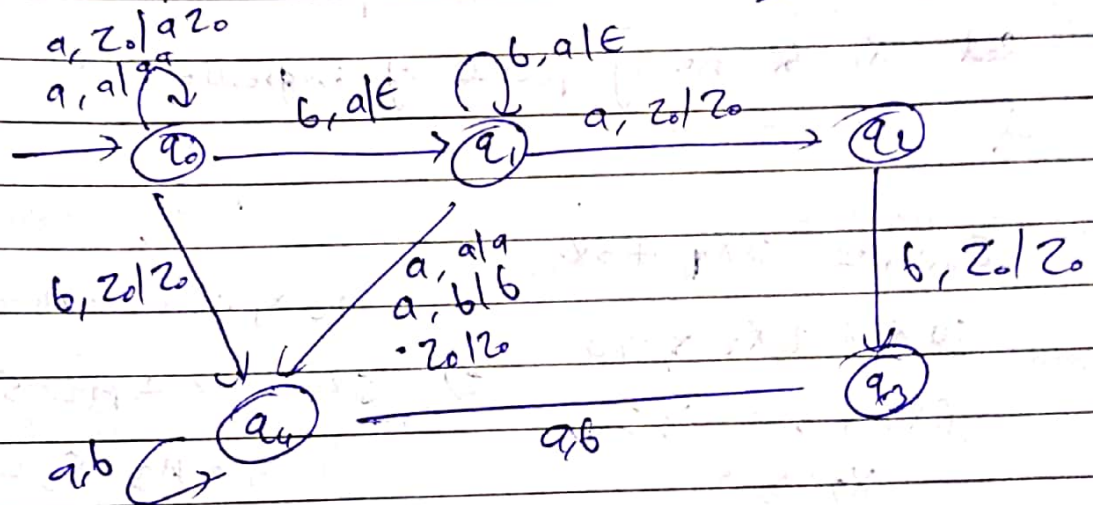 a, z₀/az₀
a, a/aa
b, a/ε
b, a/ε
a, z₀/z₀
q₀
q₁
q₂
b, z₀/z₀
a, a/a
a, b/b
. z₀/z₀
b, z₀/z₀
q₄
q₃
a,b
a,b